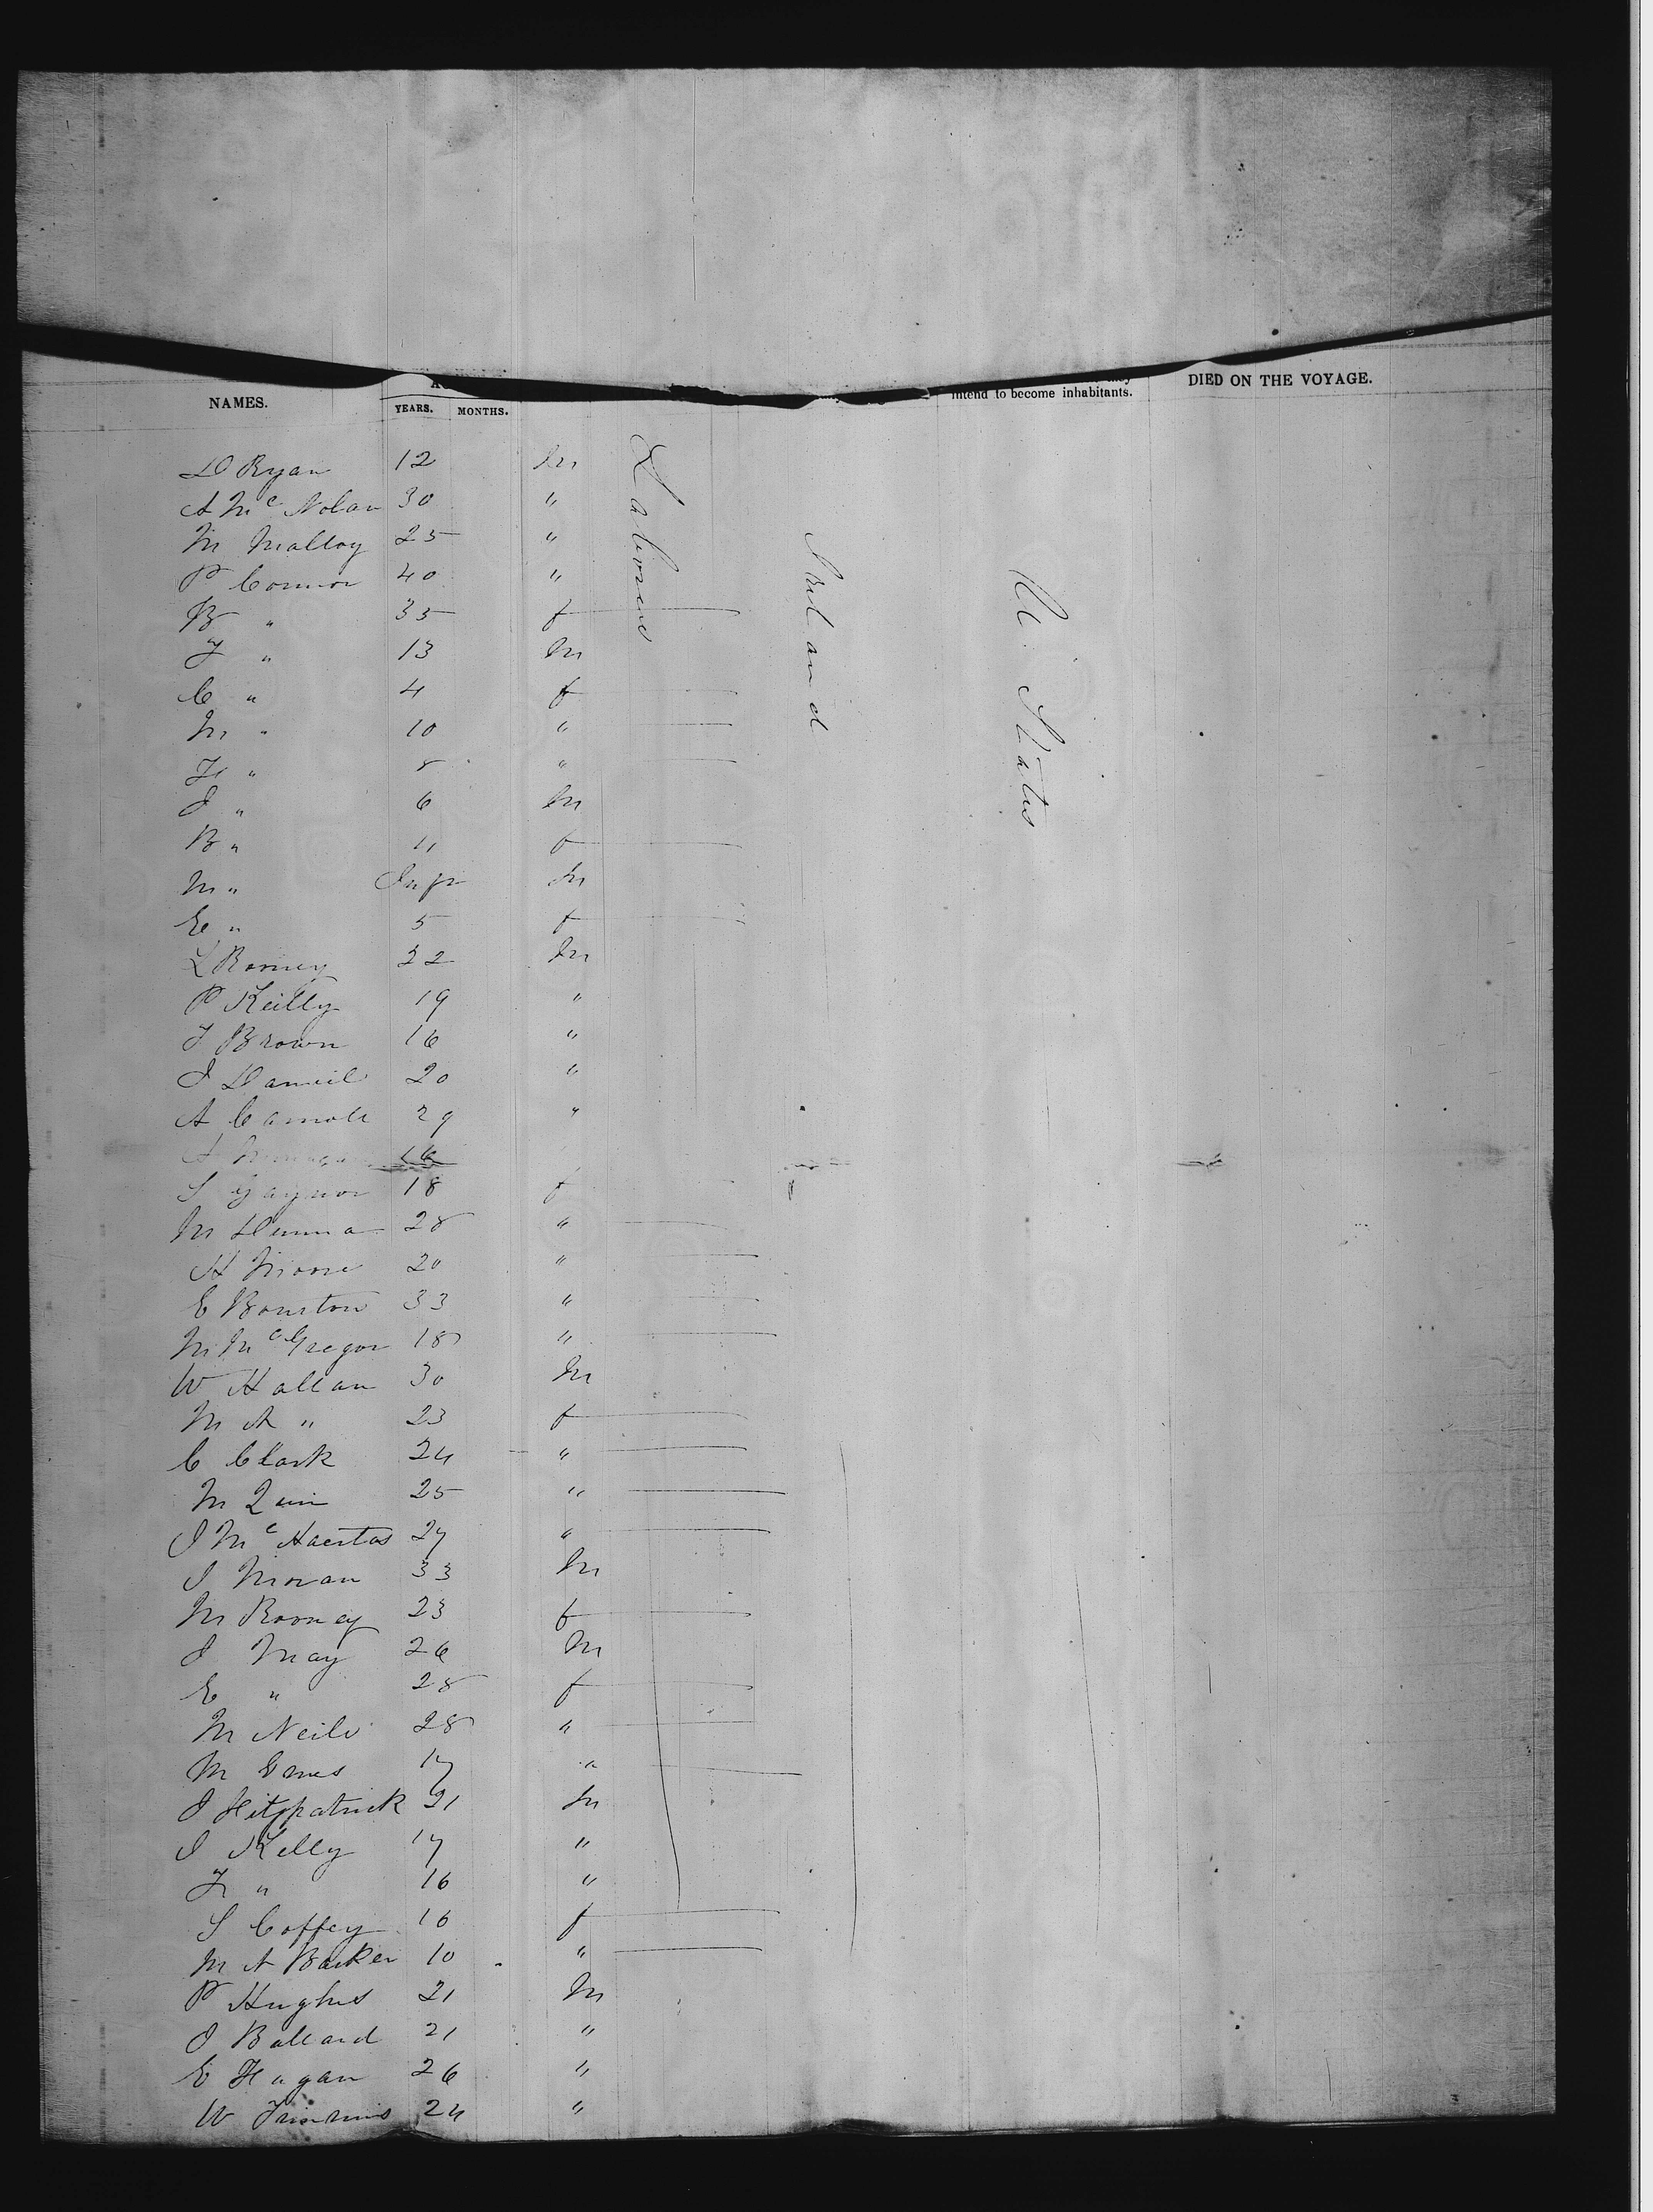 NAMES. YEARS. MONTHS. intend to become inhabitants. DIED ON THE VOYAGE.
Laborers
Ireland
U. States
D Ryan 12 M
A Mc Nolan 30 "
M Malloy 25 "
P Connor 40 "
B " 35 f
J " 13 M
C " 4 f
M " 10 "
H " 8 "
J " 6 M
B " 11 f
M " Inft M
E " 5 f
L Romey 22 M
P Reilly 19 "
J Brown 16 "
J Daniel 20 "
A Carnole 29 "
A 16
S Gaynor 18 f
M Dunna 28 "
H Moore 20 "
E Bourton 33 "
M McGregor 18 "
W Hallan 30 M
M A " 23 f
C Clark 24 "
M Quin 25 "
J Mc 27 "
J Moran 33 M
M Rooney 23 f
J May 26 M
E " 28 f
M Neile 28 "
M Ennes 17 "
J Fitzpatrick 21 M
J Kelly 17 "
F " 16 "
S Coffey 16 f
M A Barker 10 "
P Hughes 21 M
J Ballard 21 "
E Hagan 26 "
W Timmins 24 "